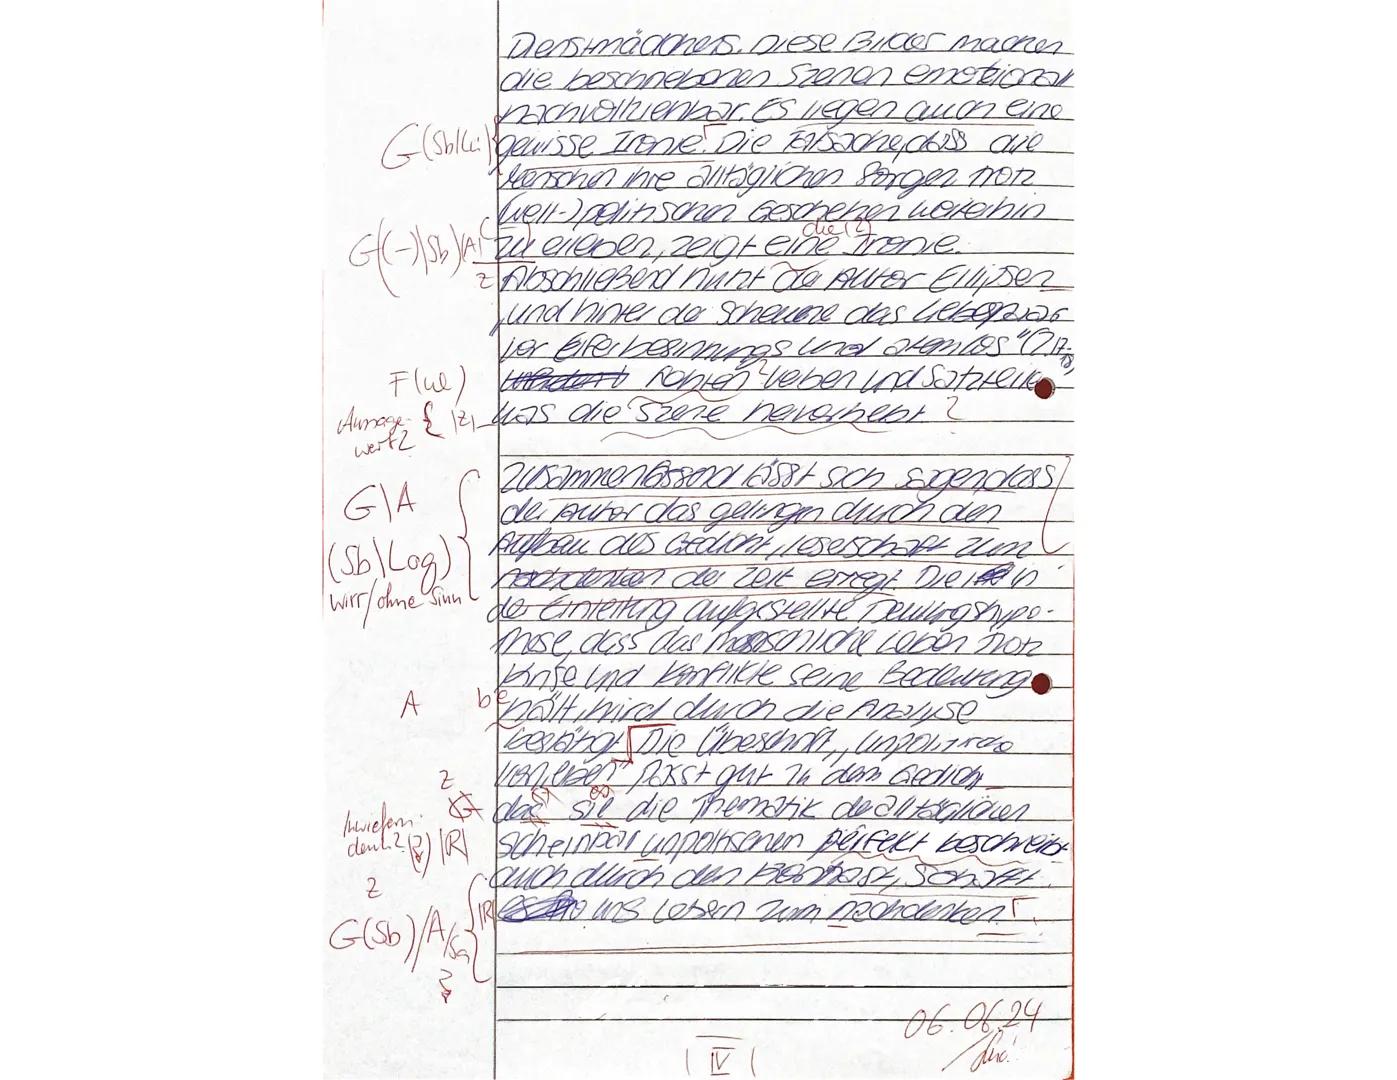 Dienstmädchens. Diese Bilder machen
die beschriebenen Szenen emotional
nachvollziehbar. Es liegen auch eine
G(Sb|Gr) gewisse Ironie. Die Tatsache, dass die
Menschen ihre alltäglichen Sorgen trotz
(welt-) politischen Geschehen weiterhin
die (?)
G(-)|Sb)|A| zu erleben, zeigt eine Ironie.
z Abschließend nutzt der Autor Ellipsen
„und hinter der Scheune das Liebespaar
vor Eifer besinnungs und atemlos" (Z. 17-
18)
F(ul) Verben und Satzteile
Aussage- |z| was die Szene hervorhebt ?
wert?
Zusammenfassend lässt sich sagen, dass
G|A der Autor das gelingen durch den
(Sb|Log) Aufbau des Gedicht, leserschaft zum
nachdenken der Zeit erregt. Die in
wirr/ohne Sinn der Einleitung aufgestellte Deutungshypo-
these, dass das menschliche Leben trotz
Krise und Konflikte seine Bedeutung
A be hält, wird durch die Analyse
bestätigt. Die Überschrift, „Unpolitische
passt gut zu dem Gedicht
z es
G das sie die Thematik der alltäglichen
Inwiefern
denn? (?) |R| scheinbar unpolitischen perfekt beschreibt
z auch durch den Kontrast, schafft
|R| es uns Lesern zum nachdenken.
G(Sb)/A/Sa
?
06.06.24
| IV |